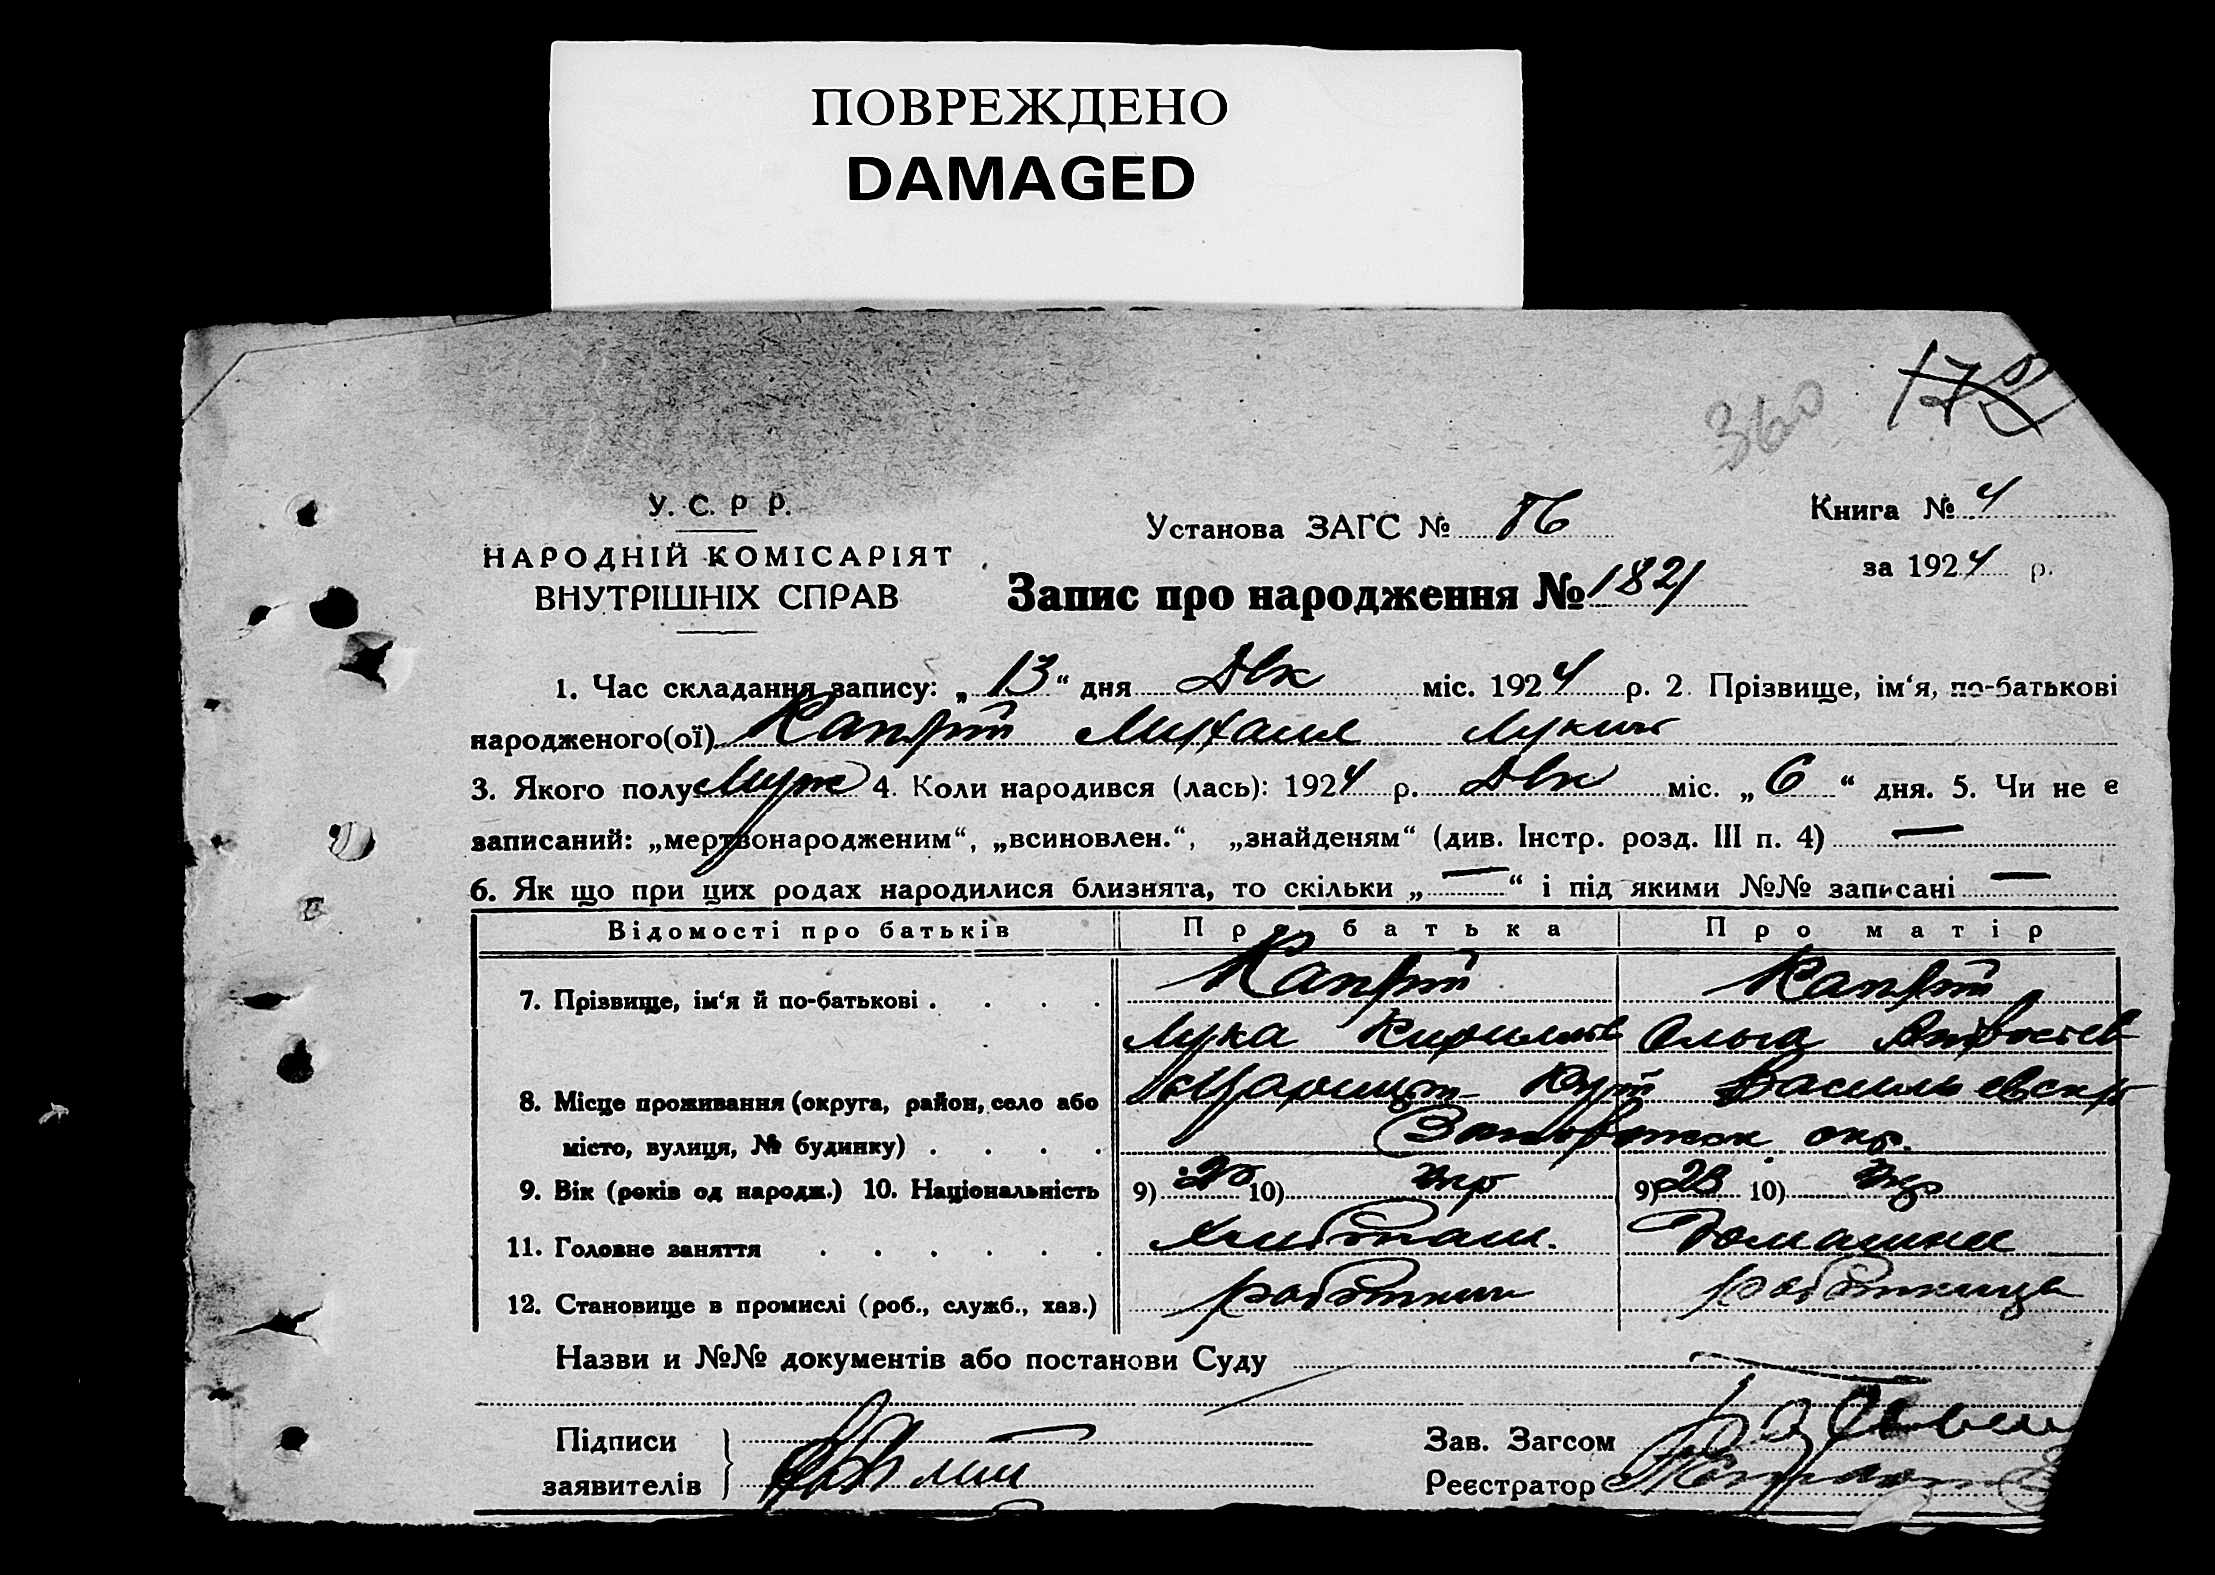 ПОВРЕЖДЕНО
DAMAGED
360 172
У. С. Р Р.
НАРОДНІЙ КОМІСАРІЯТ
ВНУТРІШНІХ СПРАВ
Установа ЗАГС №
Книга № 4
за 1924 р.
Запис про народження № 1821
1. Час складання запису: „13“ дня Дек міс. 1924 р. 2. Прізвище, ім‘я, по-батькові
народженого(ої) Михаил Лукич
3. Якого полу Муж 4. Коли народився (лась): 1924 р. Дек міс. „6“ дня. 5. Чи не є
записаний: „мертвонародженим“, „всиновлен.“, „знайденям“ (див. Інстр. розд. III п. 4) —
6. Як що при цих родах народилися близнята, то скільки „—“ і під якими №№ записані —
Відомості про батьків Про батька Про матір
7. Прізвище, ім‘я й по-батькові . . . .
Лука Кирилов Ольга
8. Місце проживання (округа, район, село або
місто, вулиця, № будинку) . . . . окр.
9. Вік (років од народж.) 10. Національність 9) 25 10) Укр 9) 23 10) Укр
11. Головне заняття . . . . . . Домашняя
12. Становище в промислі (роб., служб., хаз.) работник работница
Назви и №№ документів або постанови Суду —
Підписи
заявителів
Зав. Загсом
Реєстратор